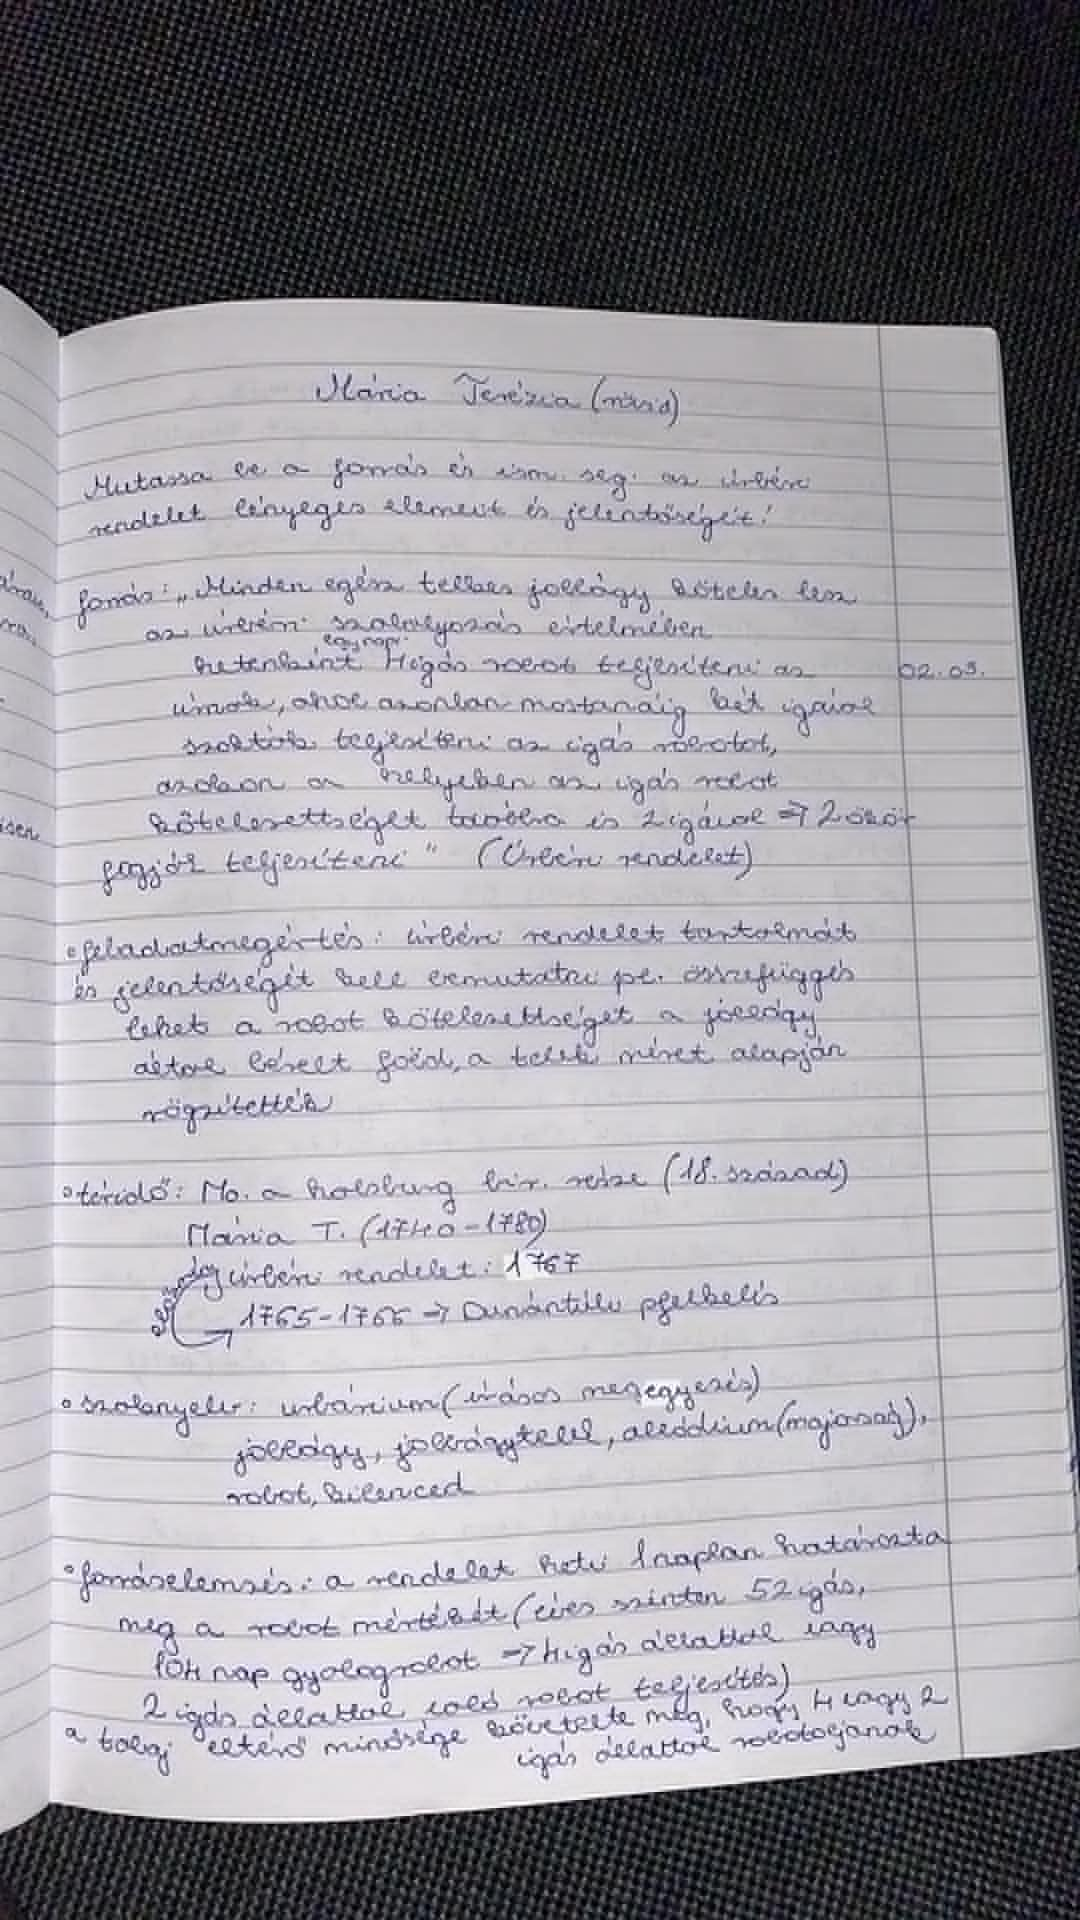 Mária Terézia (rövid)
Mutassa be a forrás és ism. seg. az úrbéri
rendelet lényeges elemeit és jelentőségét!
forrás: „Minden egész telkes jobbágy köteles lesz
az úrbéri szabályozás értelmében
egy napi
hetenként 4 igás robot teljesíteni az
02.03.
úrnak, ahol azonban mostanáig két igával
szokták teljesíteni az igás robotot,
azokon a helyeken az igás robot
kötelezettséget továbbra is 2 igával → 2 ökör
fogják teljesíteni" (Úrbéri rendelet)
• feladatmegértés: úrbéri rendelet tartalmát
és jelentőségét kell bemutatni pl. összefüggés
lehet a robot kötelezettséget a jobbágy
által bérelt föld, a telek méret alapján
rögzítették
• téridő: Mo. a habsburg bir. része (18. század)
Mária T. (1740-1780)
úrbéri rendelet: 1767
1765-1766 → Dunántúli pfelkelés
• szaknyelv: urbárium (írásos megegyezés)
jobbágy, jobbágytelek, allódium (majorság),
robot, kilenced
• forráselemzés: a rendelet heti 1 napban határozta
meg a robot mértékét (éves szinten 52 igás,
104 nap gyalogrobot → 4 igás állattal vagy
2 igás állattal való robot teljesítés)
a talaj eltérő minősége követelte meg, hogy 4 vagy 2
igás állattal robotoljanak